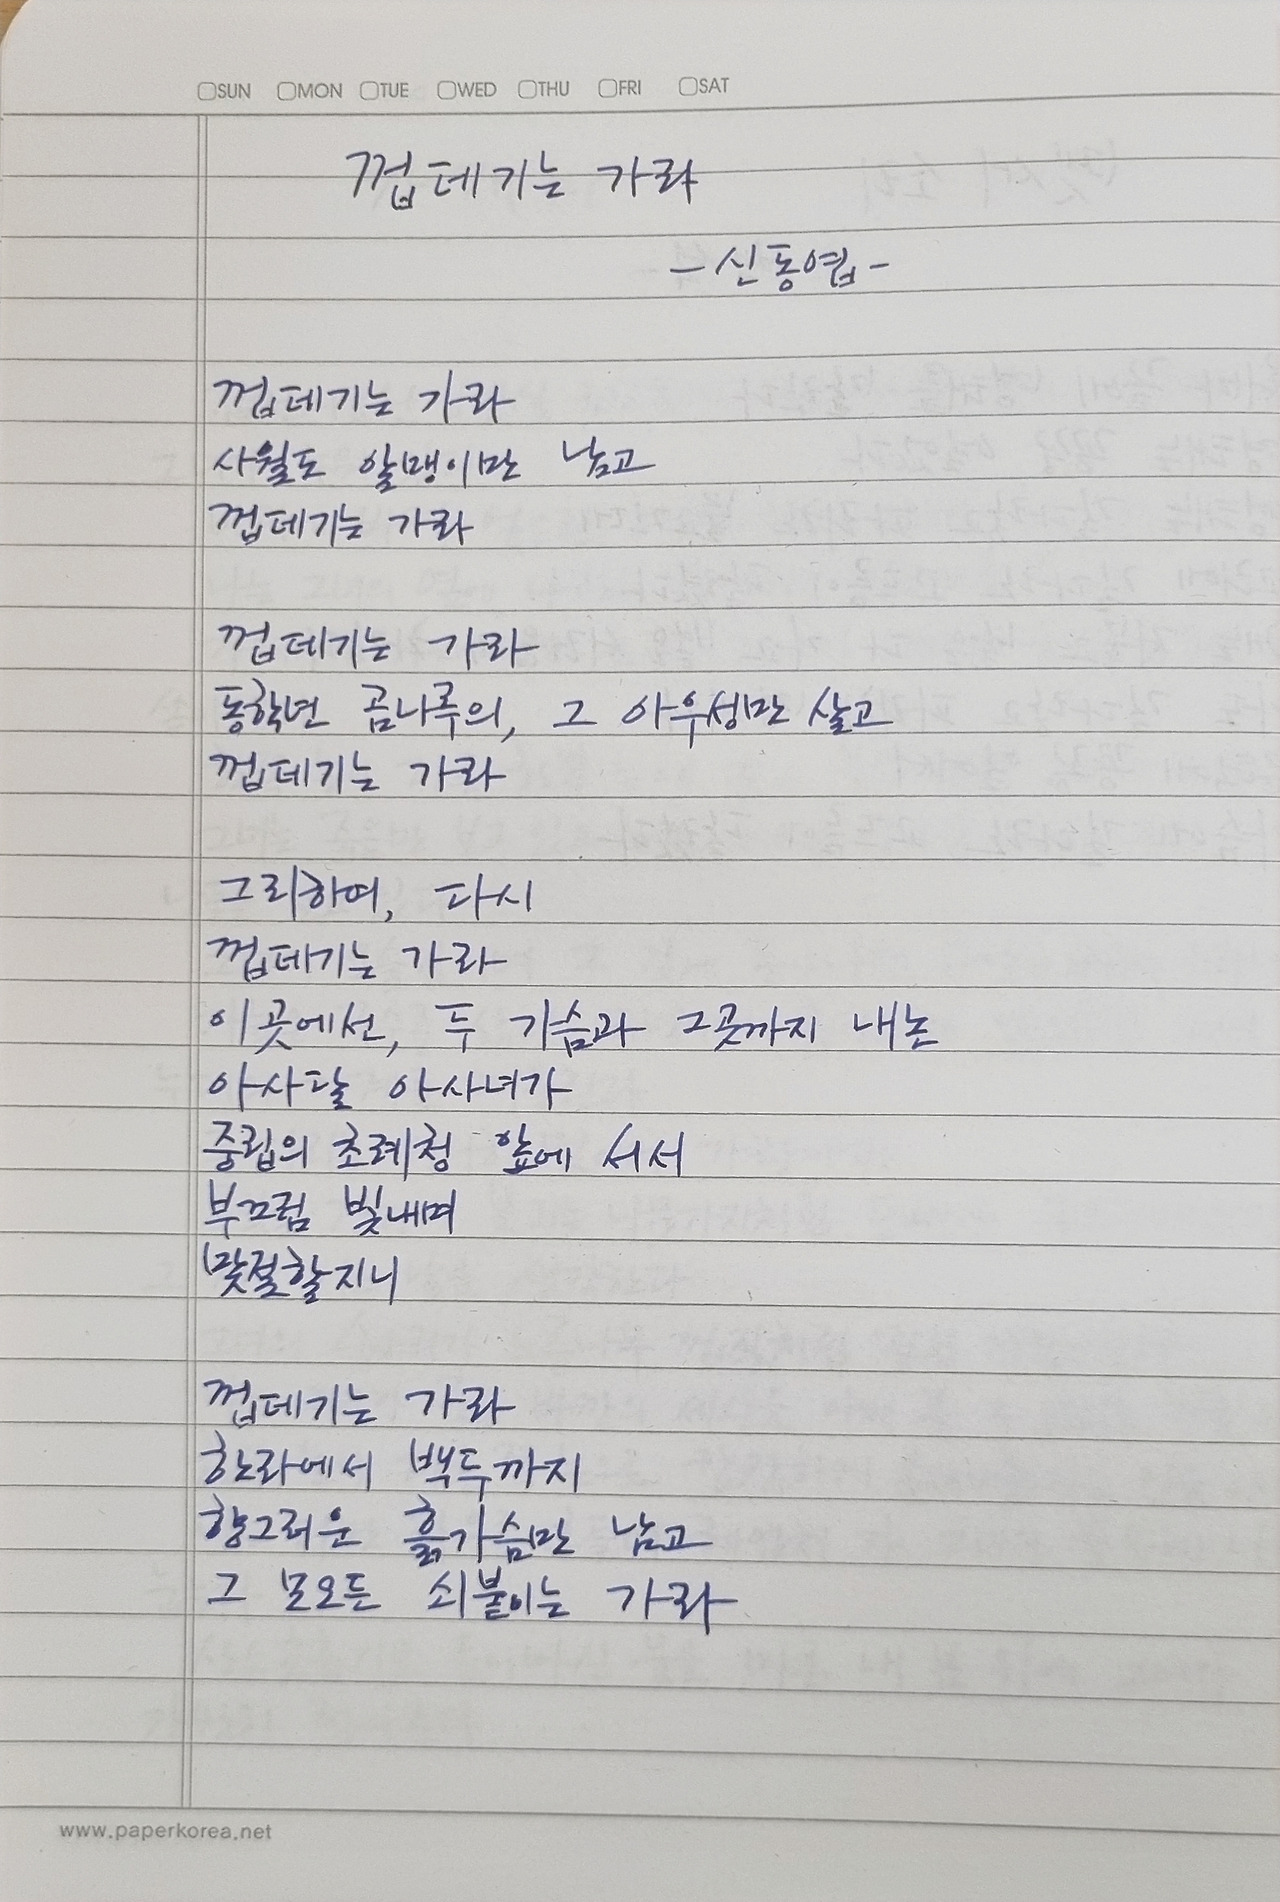 SUN MON TUE WED THU FRI SAT
껍데기는 가라
-신동엽-
껍데기는 가라
사월도 알맹이만 남고
껍데기는 가라
껍데기는 가라
동학년 곰나루의, 그 아우성만 살고
껍데기는 가라
그리하여, 다시
껍데기는 가라
이곳에선, 두 가슴과 그곳까지 내논
아사달 아사녀가
중립의 초례청 앞에 서서
부끄럼 빛내며
맞절할지니
껍데기는 가라
한라에서 백두까지
향그러운 흙가슴만 남고
그 모오든 쇠붙이는 가라
www.paperkorea.net